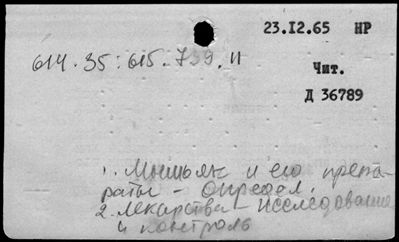 23.I2.65 НР
614.35:615.739.11
Чит.
Д 36789
1. Мышьяк и его препа-
раты - определ.
2. Лекарства - исследование
и контроль